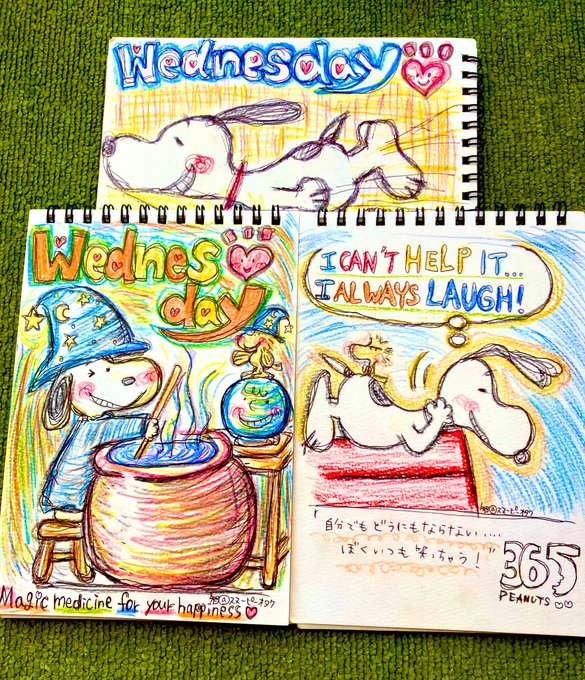 Wednesday
Wednes
day
Magic medicine for your happiness
I CAN'T HELP IT...
I ALWAYS LAUGH!
自分でもどうにもならない....
ぼくいつも笑っちゃう!
365
PEANUTS